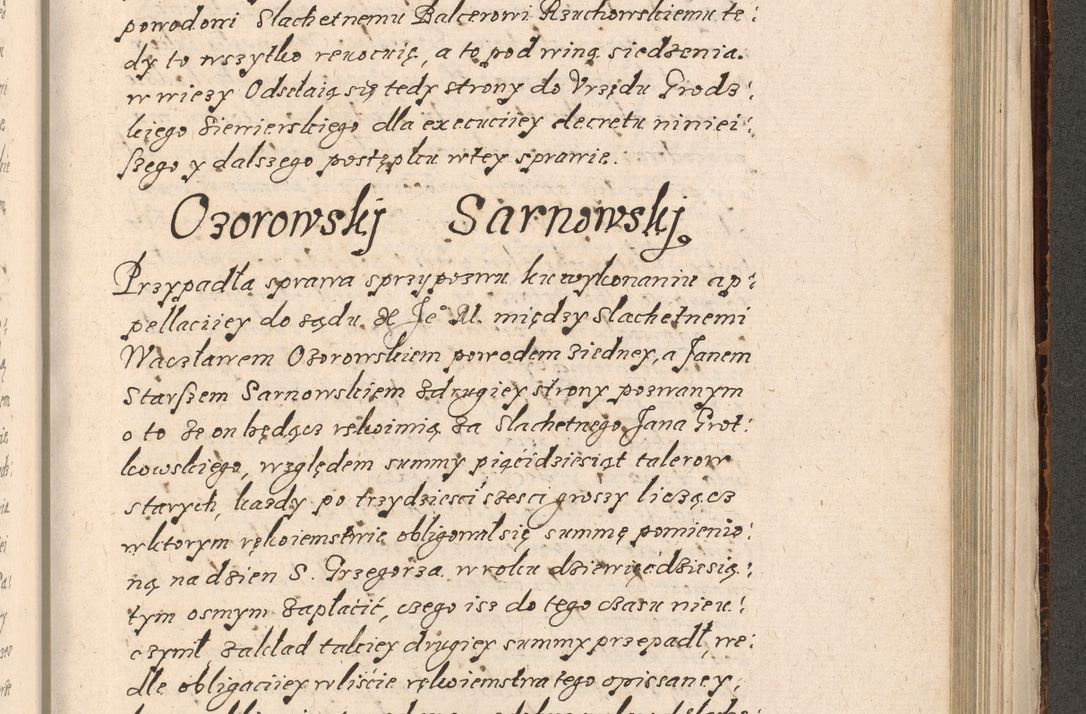 powodowi Slachetnemu Balcerowi Rzuchowskiemu te:
dy to wszytko reuocuię, a to pod winą siedzenia.
w wiezy Odsełaią się tedy strony do Vrzędu Grodz:
kiego Siewierskiego dla execuciiey decretu niniei:
szego y dalszego postępku wtey sprawie.
Ozorowskj Sarnowskj
Przypadła sprawa sprzypozwu ku wykonaniu ap:
pellaciiey do sądu X. Je° M. między Slachetnemi
Waczławem Ozorowskiem powodem ziedney, a Janem
Starszem Sarnowskiem zdrugiey strony pozwanym
o to ze on będącz rękoimią za Slachetnego Jana Grot:
kowskiego, względem summy pięćidziesiąt talerow
starych, kazdy po trzydziesci szesci groszy liczącz
wktorym rękoiemstwie obligował się summę pomienio:
ną na dzien S. Grzegorza w roku dziewięćdziesią:
tym osmym zapłacić, czego isz do tego czasu nieu:
czynił zakład takiey drugiey summy przepadł, we:
dle obligaciiey w liście rękoiemstwa tego opissaney,